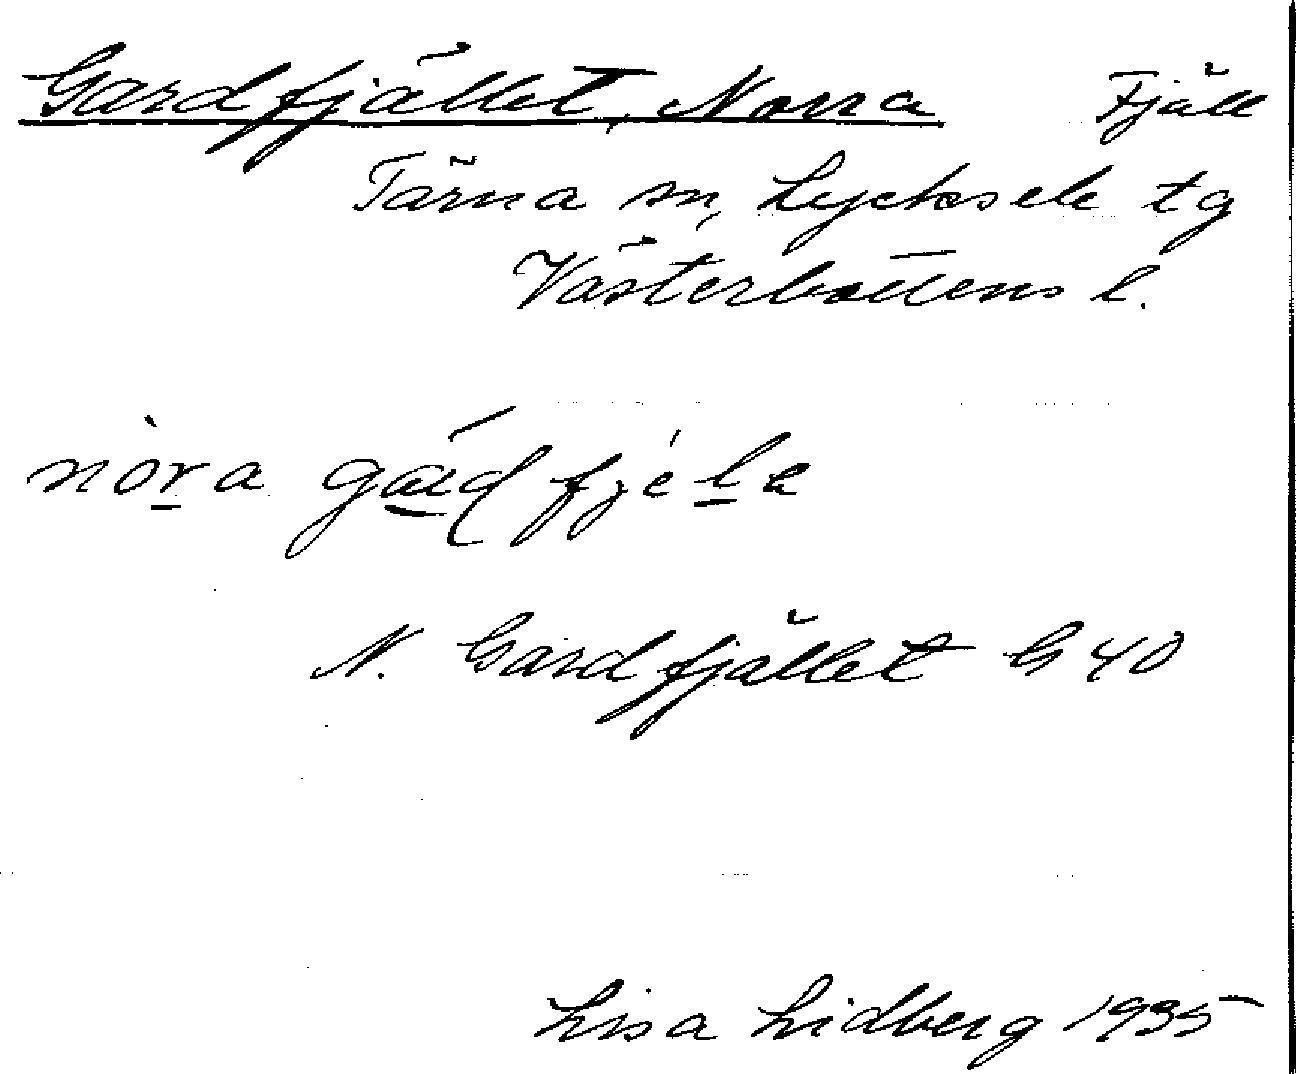 Gardfjället, Norra Fjäll
Tärna sn, Lycksele tg
Västerbottens l.
nòra fjéla
N. Gardfjället G 40
Lisa Lidberg 1935